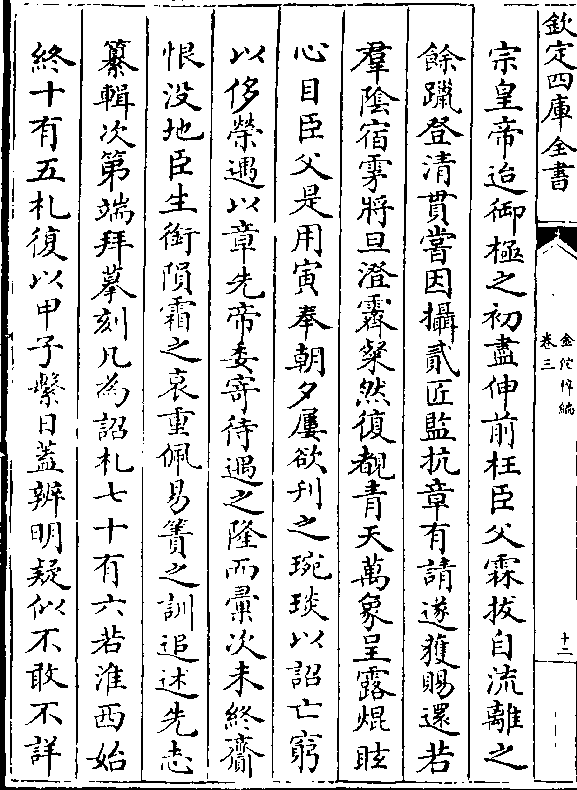 欽定四庫全書
金佗稡編
卷三
十二
宗皇帝迨御極之初盡伸前枉臣父霖拔自流離之
餘躐登清貫嘗因攝貳匠監抗章有請遂獲賜還若
羣陰宿雺將旦澄霽粲然復覩青天萬象呈露焜眩
心目臣父是用寅奉朝夕屢欲刋之琬琰以詔亡窮
以侈榮遇以章先帝委寄待遇之隆而彚次未終齎
恨没地臣生銜隕霜之哀重佩易簀之訓追述先志
纂輯次第端拜摹刻凡為詔札七十有六若淮西始
終十有五札復以甲子繫日蓋辨明疑似不敢不詳